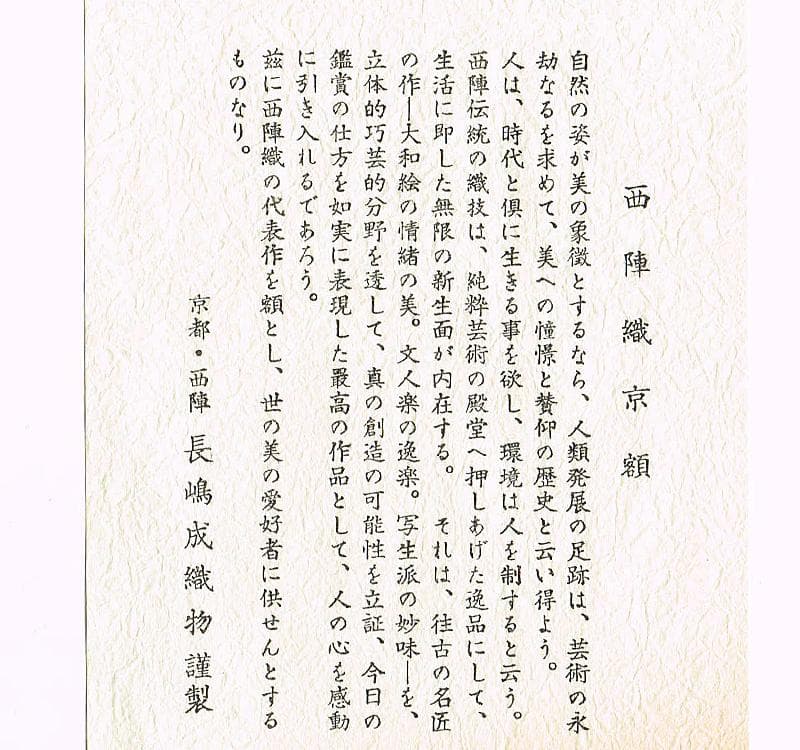 西陣織京額
自然の姿が美の象徴とするなら、人類発展の足跡は、芸術の永
劫なるを求めて、美への憧憬と賛仰の歴史と云い得よう。
人は、時代と倶に生きる事を欲し、環境は人を制すると云う。
西陣伝統の織技は、純粋芸術の殿堂へ押しあげた逸品にして、
生活に即した無限の新生面が内在する。 それは、往古の名匠
の作―大和絵の情緒の美。文人楽の逸楽。写生派の妙味―を、
立体的巧芸的分野を透して、真の創造の可能性を立証、今日の
鑑賞の仕方を如実に表現した最高の作品として、人の心を感動
に引き入れるであろう。
茲に西陣織の代表作を額とし、世の美の愛好者に供せんとする
ものなり。
京都・西陣 長嶋成織物謹製